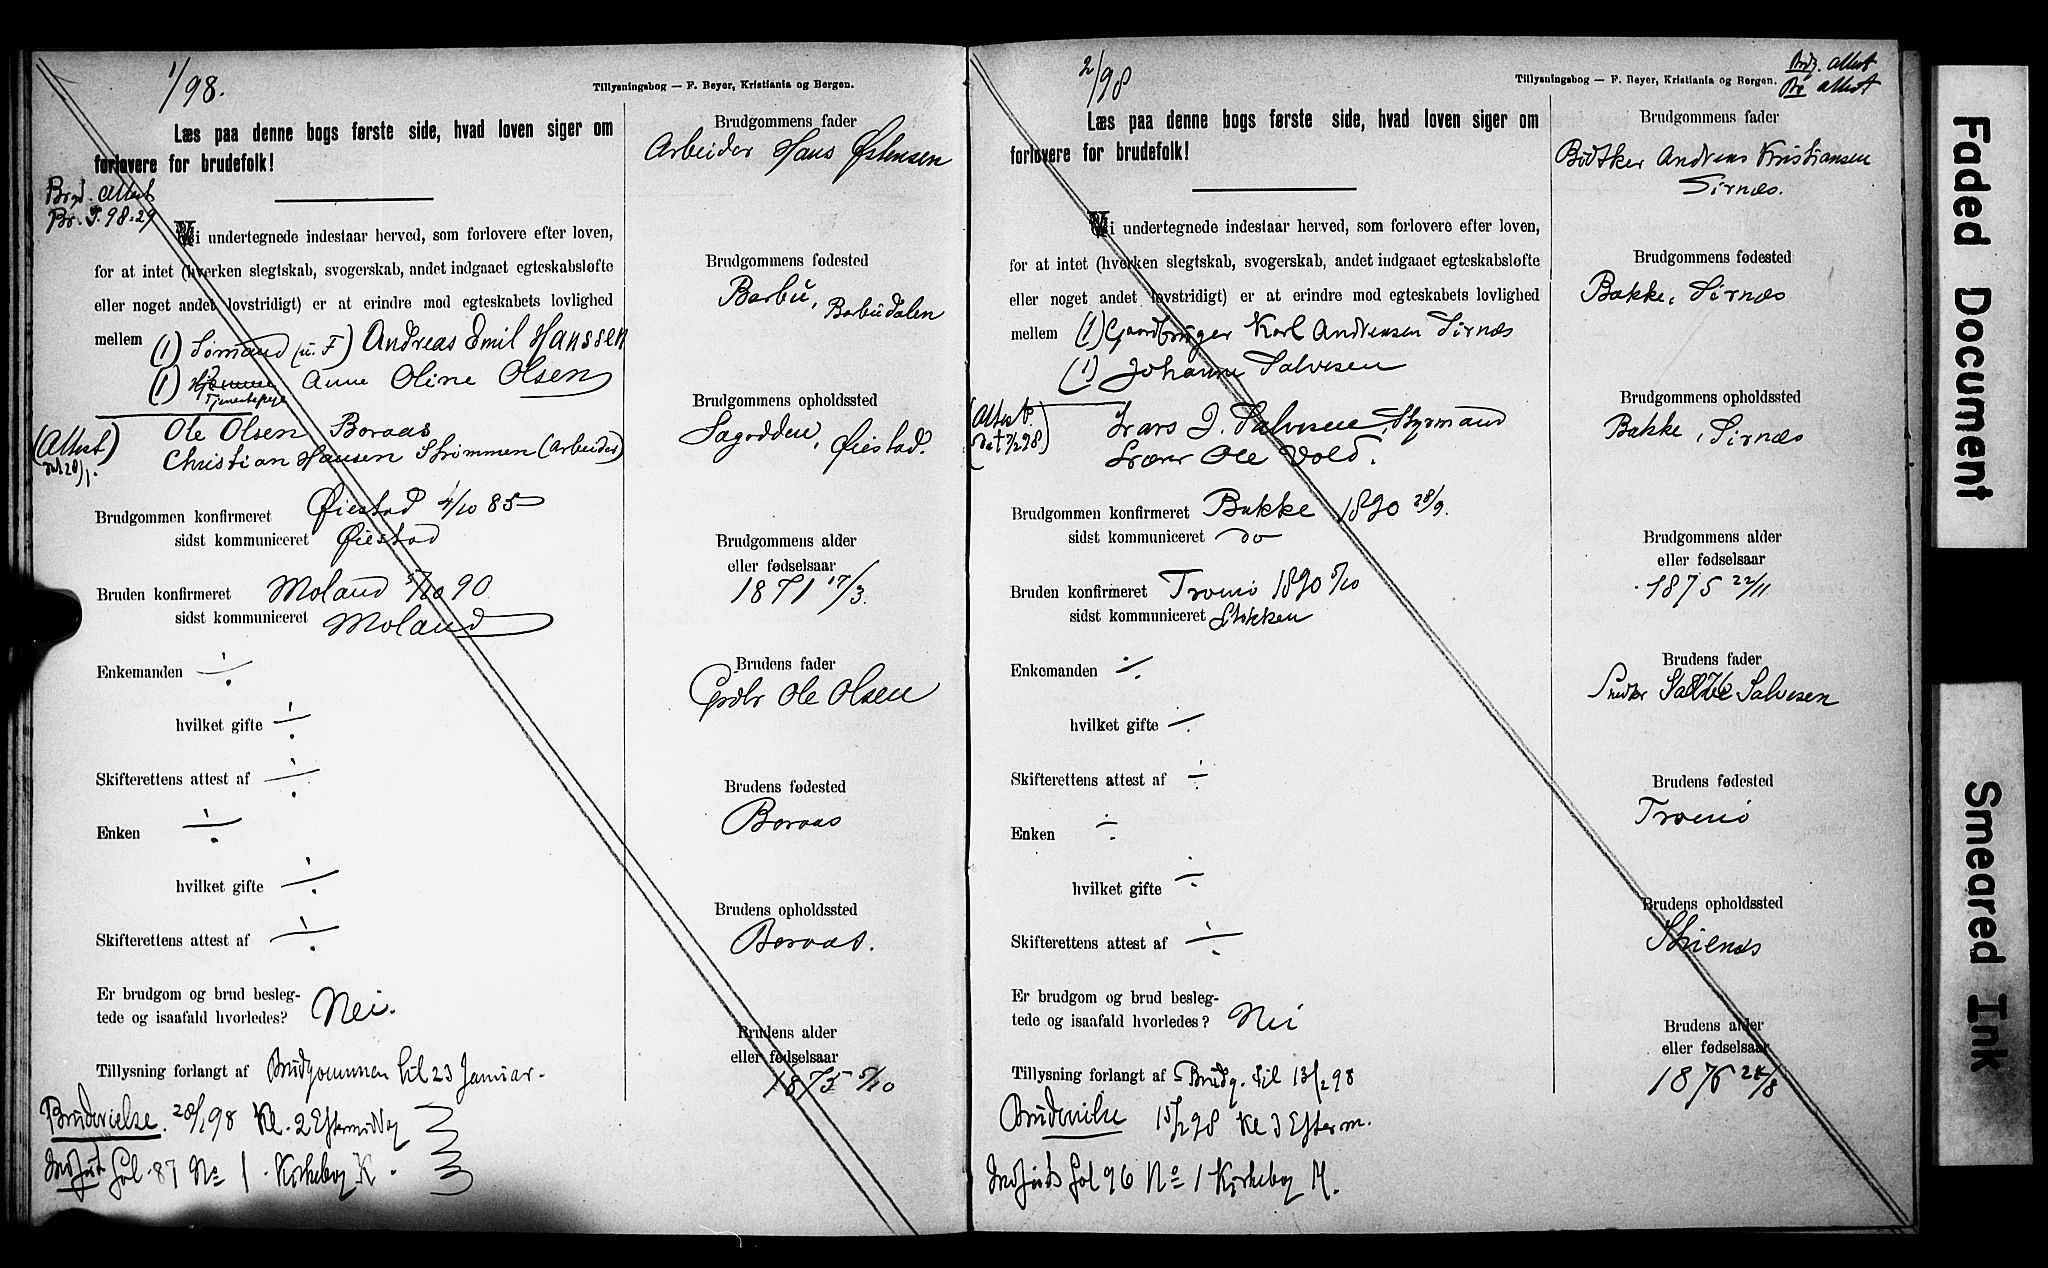 1/98.
Tillysningsbog — F. Beyer, Kristiania og Bergen.
Læs paa denne bogs første side, hvad loven siger om
forlovere for brudefolk!
Brgd. Attest
Br. J. 98.29
Vi undertegnede indestaar herved, som forlovere efter loven,
for at intet (hverken slegtskab, svogerskab, andet indgaaet egteskabsløfte
eller noget andet lovstridigt) er at erindre mod egteskabets lovlighed
mellem (1) Sømand (u. F) Andreas Emil Hanssen
(1) Hjemme Anne Oline Olsen
Tjenestepige
Ole Olsen Boraas
(Attest) Christian Hansen Strømmen (Arbeider)
Brudgommen konfirmeret Øiestad 4/10 85
sidst kommuniceret Øiestad
Bruden konfirmeret Moland 5/10 90
sidst kommuniceret Moland
Enkemanden ÷
hvilket gifte ÷
Skifterettens attest af ÷
Enken ÷
hvilket gifte ÷
Skifterettens attest af ÷
Er brudgom og brud besleg-
tede og isaafald hvorledes? Nei.
Tillysning forlangt af Brudgommen til 23 Januar.
Brudevielse. 28/1 98 Kl. 2 Eftermiddag
Indført Fol. 87 No 1. Kirkebog K.
Brudgommens fader
Arbeider Hans Østensen
Brudgommens fødested
Barbu, Barbudalen
Brudgommens opholdssted
Sagodden, Øiestad.
Brudgommens alder
eller fødselsaar
1871 17/3.
Brudens fader
Grdbr Ole Olsen
Brudens fødested
Boraas
Brudens opholdssted
Boraas.
Brudens alder
eller fødselsaar
1875 5/10
2/98
Tillysningsbog — F. Beyer, Kristiania og Bergen.
Brdg. attest
Br attest
Læs paa denne bogs første side, hvad loven siger om
forlovere for brudefolk!
Vi undertegnede indestaar herved, som forlovere efter loven,
for at intet (hverken slegtskab, svogerskab, andet indgaaet egteskabsløfte
eller noget andet lovstridigt) er at erindre mod egteskabets lovlighed
mellem (1) Gaardbruger Karl Andreasen Sirnæs
(1) Johanne Salvesen
(Attest Lars J. Salvesen, Styrmand
Ole Vold.
Brudgommen konfirmeret Bakke 1890 28/9.
sidst kommuniceret do
Bruden konfirmeret Tromø 1890 5/10
sidst kommuniceret Stokken
Enkemanden ÷
hvilket gifte ÷
Skifterettens attest af ÷
Enken ÷
hvilket gifte ÷
Skifterettens attest af ÷
Er brudgom og brud besleg-
tede og isaafald hvorledes? Nei
Tillysning forlangt af Brudg. til 13/2 98
Brudevielse 15/2 98 Kl 3 Efterm.
Indførts Fol 96 No 1 Kirkebog M.
Brudgommens fader
Bødker Andreas Kristiansen
Sirnæs.
Brudgommens fødested
Bakke, Sirnæs
Brudgommens opholdssted
Bakke, Sirnæs
Brudgommens alder
eller fødselsaar
1875 22/11
Brudens fader
Snedker Salve Salvesen
Brudens fødested
Tromø
Brudens opholdssted
Skilnæs
Brudens alder
eller fødselsaar
1876 24/8
Faded Document
Smeared Ink